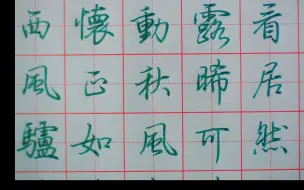 看居然
露晞可
動秋風
懷正如
西風驢